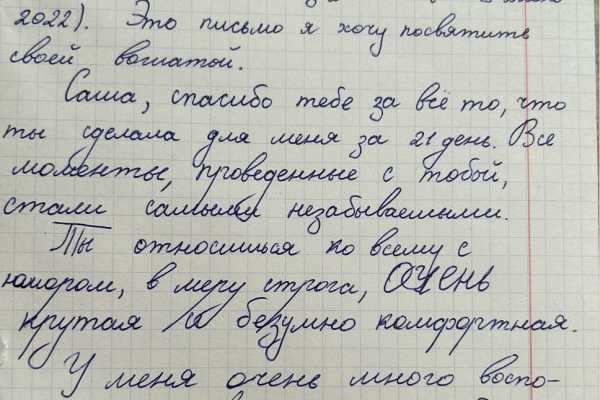 2022). Это письмо я хочу посвятить
своей вожатой.
Саша, спасибо тебе за всё то, что
ты сделала для меня за 21 день. Все
моменты, проведенные с тобой,
стали самыми незабываемыми.
Ты относишься ко всему с
юмором, в меру строга, ОЧЕНЬ
крутая и безумно комфортная.
У меня очень много воспо-